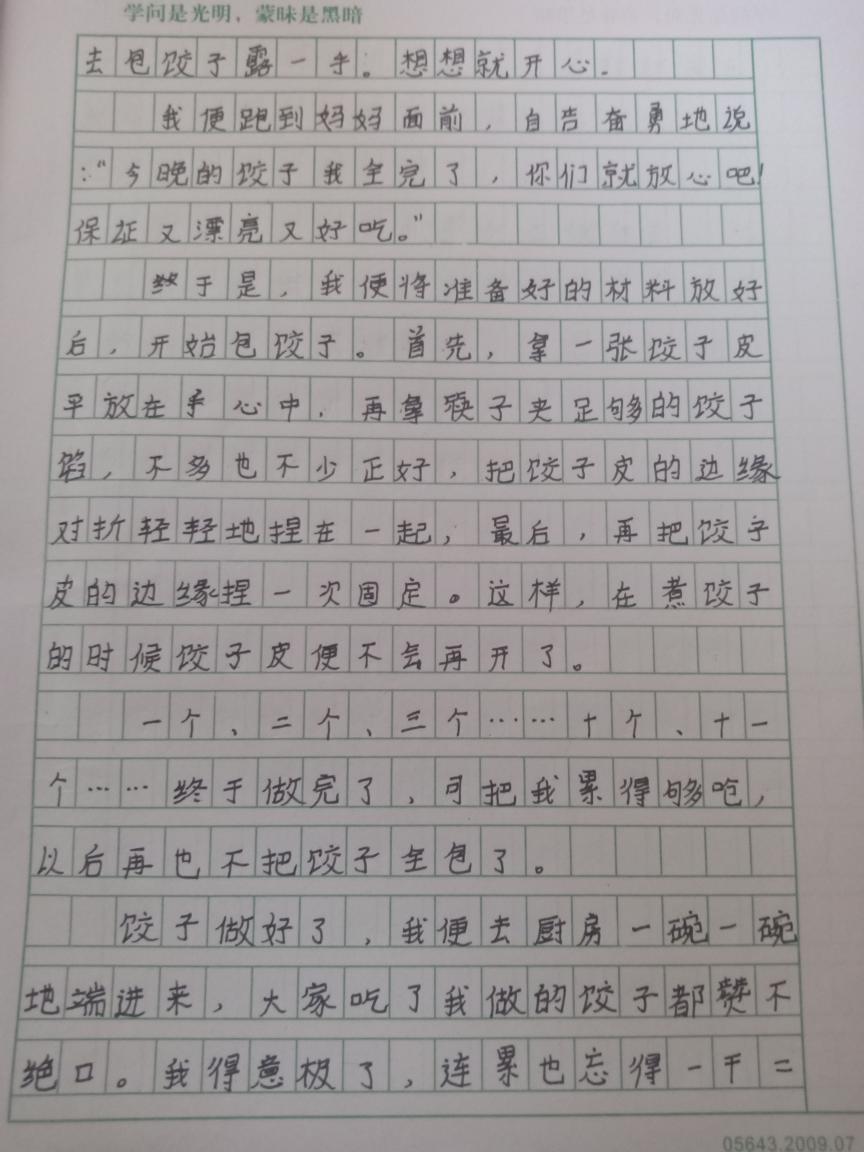 学问是光明，蒙昧是黑暗
去包饺子露一手。想想就开心.
我便跑到妈妈面前，自告奋勇地说
：“今晚的饺子我全完了，你们就放心吧！
保证又漂亮又好吃。”
终于是，我便将准备好的材料放好
后，开始包饺子。首先，拿一张饺子皮
平放在手心中，再拿筷子夹足够的饺子
馅，不多也不少正好，把饺子皮的边缘
对折轻轻地捏在一起，最后，再把饺子
皮的边缘捏一次固定。这样，在煮饺子
的时候饺子皮便不会再开了。
一个、二个、三个……十个、十一
个……终于做完了，可把我累得够呛，
以后再也不把饺子全包了。
饺子做好了，我便去厨房一碗一碗
地端进来，大家吃了我做的饺子都赞不
绝口。我得意极了，连累也忘得一干二
05643.2009.07